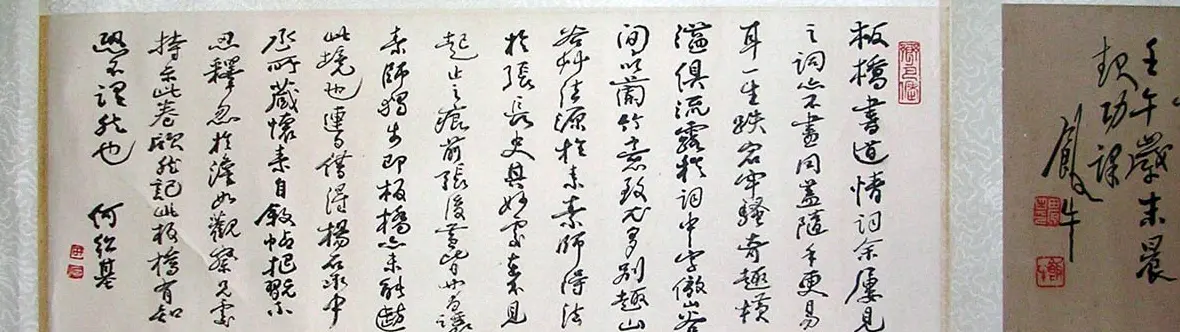 壬午歲末晨
功課
板橋書道情詞余屢見
之詞亦不盡同蓋隨手更易
耳一生跌宕牢騷奇趣橫
溢俱流露於詞中字仿山谷
間以蘭竹意致尤多別趣山
谷艸法源於素素師得法
於張長史其妙處在不見
起止之痕前張後黃皆當讓
素師獨步即板橋亦未能
此境也連日借得楊石泉中
丞所藏懷素自敘帖把玩不
忍釋忽於澹如觀察兄處
持示此卷欣然記此板橋有知
不謂然也
何紹基